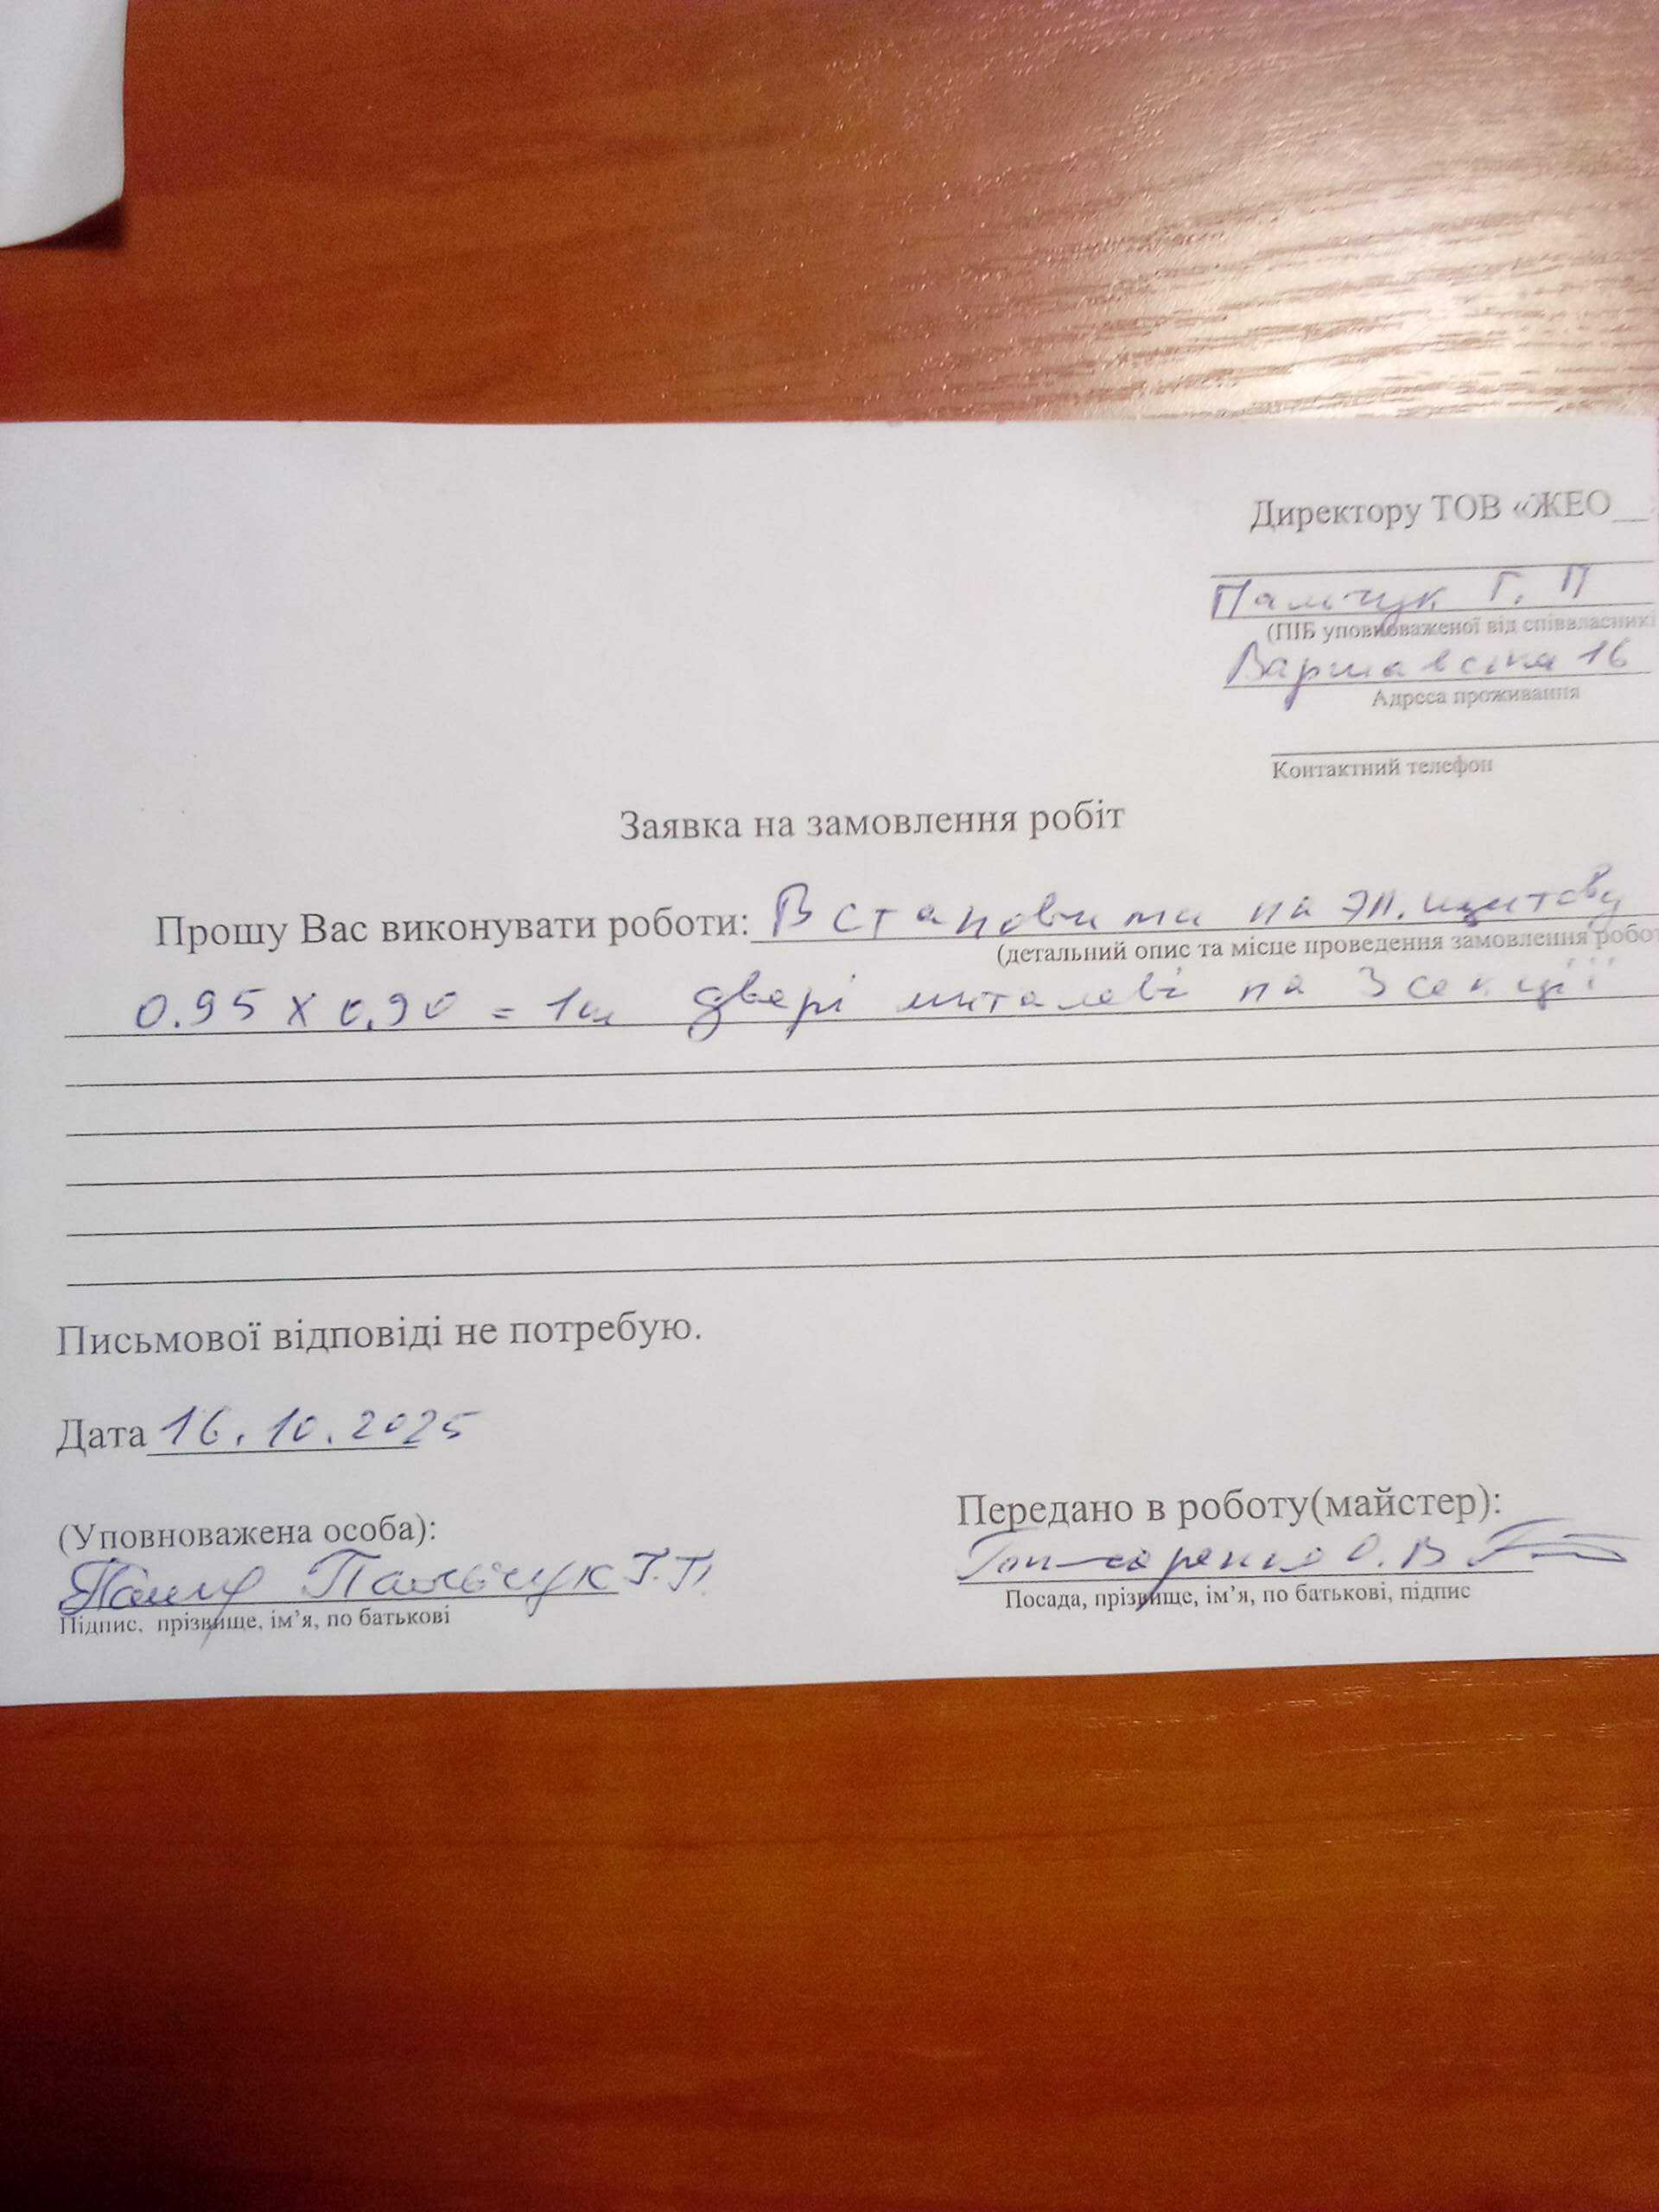 Директору ТОВ «ЖЕО__
Пальчук Г. П
(ПІБ уповноваженої від співвласникі
Варшавська 16
Адреса проживання
Контактний телефон
Заявка на замовлення робіт
Прошу Вас виконувати роботи: Встановити на эл. щитову
(детальний опис та місце проведення замовлення робот
0.95 х 0,90 = 1ш двері миталеві на 3 секції
Письмової відповіді не потребую.
Дата 16.10.2025
(Уповноважена особа):
Пальчук Г.П.
Підпис, прізвище, ім’я, по батькові
Передано в роботу(майстер):
Гончаренко О.В
Посада, прізвище, ім’я, по батькові, підпис